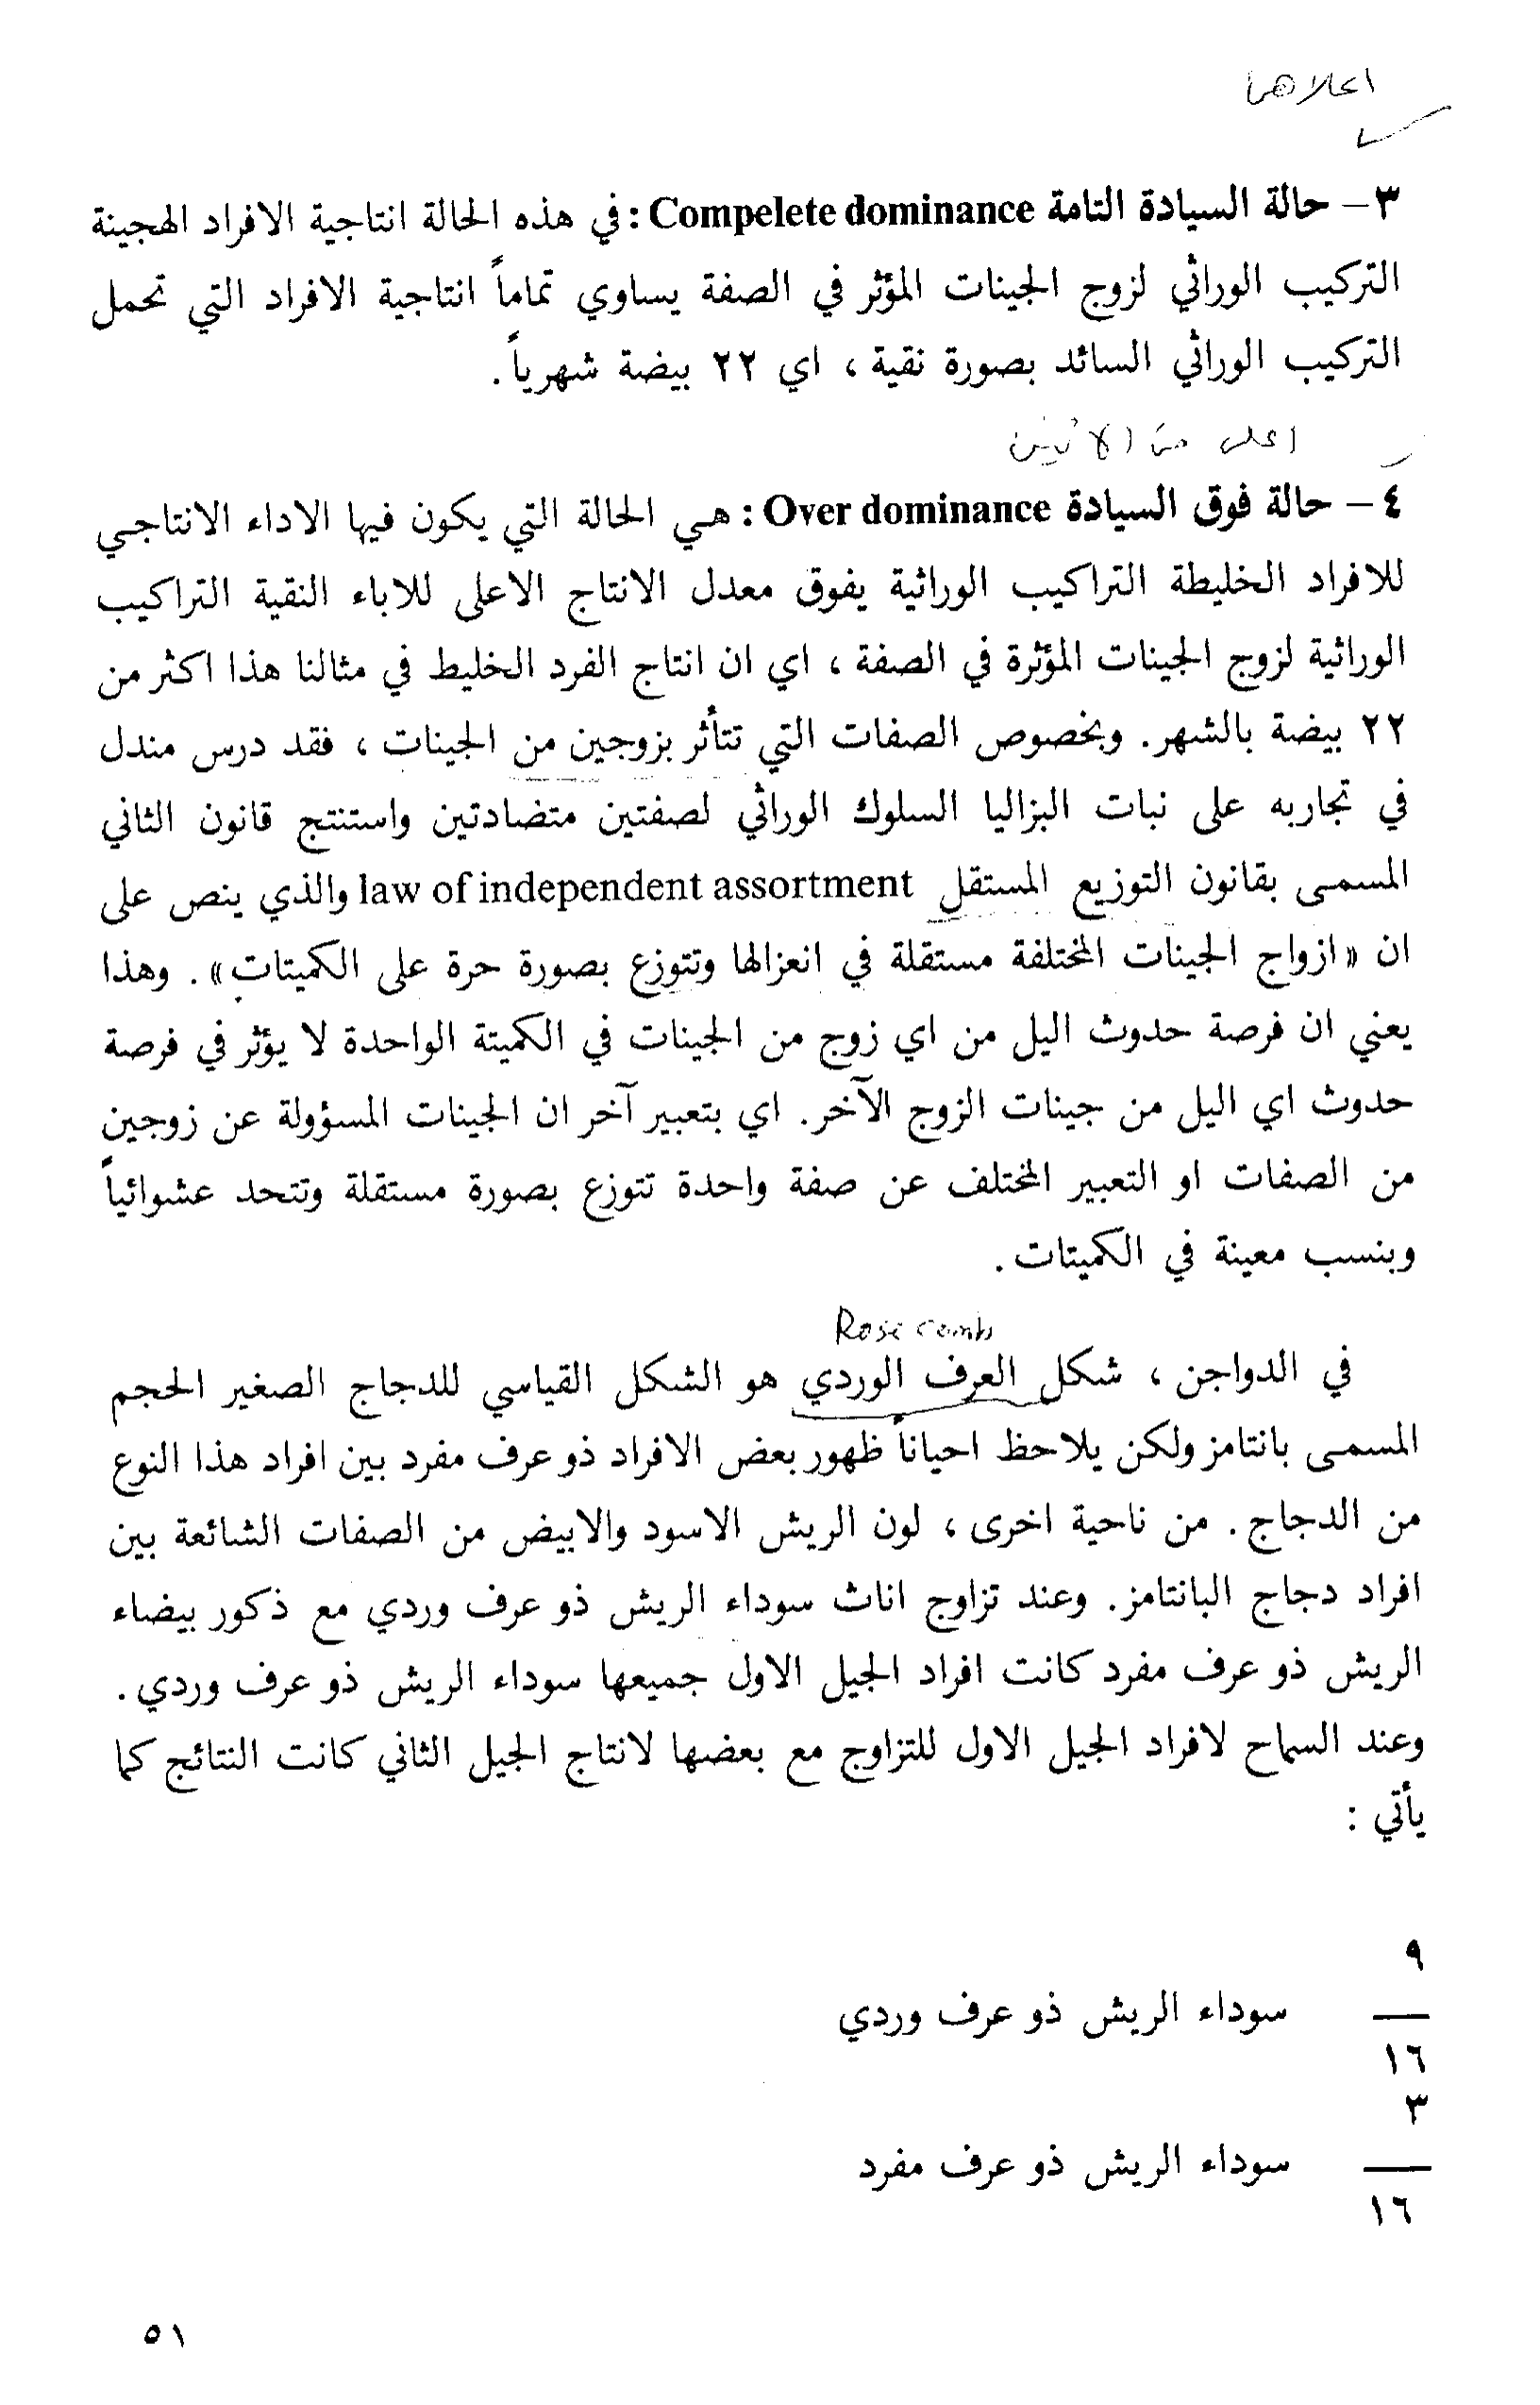 اعلاهما
٣ – حالة السيادة التامة Compelete dominance : في هذه الحالة انتاجية الافراد الهجينة
التركيب الوراثي لزوج الجينات المؤثر في الصفة يساوي تماماً انتاجية الافراد التي تحمل
التركيب الوراثي السائد بصورة نقية ، اي ٢٢ بيضة شهرياً .
اعلى من الاثنين
٤ – حالة فوق السيادة Over dominance : هي الحالة التي يكون فيها الاداء الانتاجي
للافراد الخليطة التراكيب الوراثية يفوق معدل الانتاج الاعلى للاباء النقية التراكيب
الوراثية لزوج الجينات المؤثرة في الصفة ، اي ان انتاج الفرد الخليط في مثالنا هذا اكثر من
٢٢ بيضة بالشهر. وبخصوص الصفات التي تتأثر بزوجين من الجينات ، فقد درس مندل
في تجاربه على نبات البزاليا السلوك الوراثي لصفتين متضادتين واستنتج قانون الثاني
المسمى بقانون التوزيع المستقل law of independent assortment والذي ينص على
ان «ازواج الجينات المختلفة مستقلة في انعزالها وتتوزع بصورة حرة على الكميتات» . وهذا
يعني ان فرصة حدوث اليل من اي زوج من الجينات في الكميتة الواحدة لا يؤثر في فرصة
حدوث اي اليل من جينات الزوج الآخر. اي بتعبير آخر ان الجينات المسؤولة عن زوجين
من الصفات او التعبير المختلف عن صفة واحدة تتوزع بصورة مستقلة وتتحد عشوائياً
وبنسب معينة في الكميتات .
Rose comb
في الدواجن ، شكل العرف الوردي هو الشكل القياسي للدجاج الصغير الحجم
المسمى بانتامز ولكن يلاحظ احياناً ظهور بعض الافراد ذو عرف مفرد بين افراد هذا النوع
من الدجاج . من ناحية اخرى ، لون الريش الاسود والابيض من الصفات الشائعة بين
افراد دجاج البانتامز. وعند تزاوج اناث سوداء الريش ذو عرف وردي مع ذكور بيضاء
الريش ذو عرف مفرد كانت افراد الجيل الاول جميعها سوداء الريش ذو عرف وردي .
وعند السماح لافراد الجيل الاول للتزاوج مع بعضها لانتاج الجيل الثاني كانت النتائج كما
يأتي :
٩
— سوداء الريش ذو عرف وردي
١٦
٣
— سوداء الريش ذو عرف مفرد
١٦
٥١